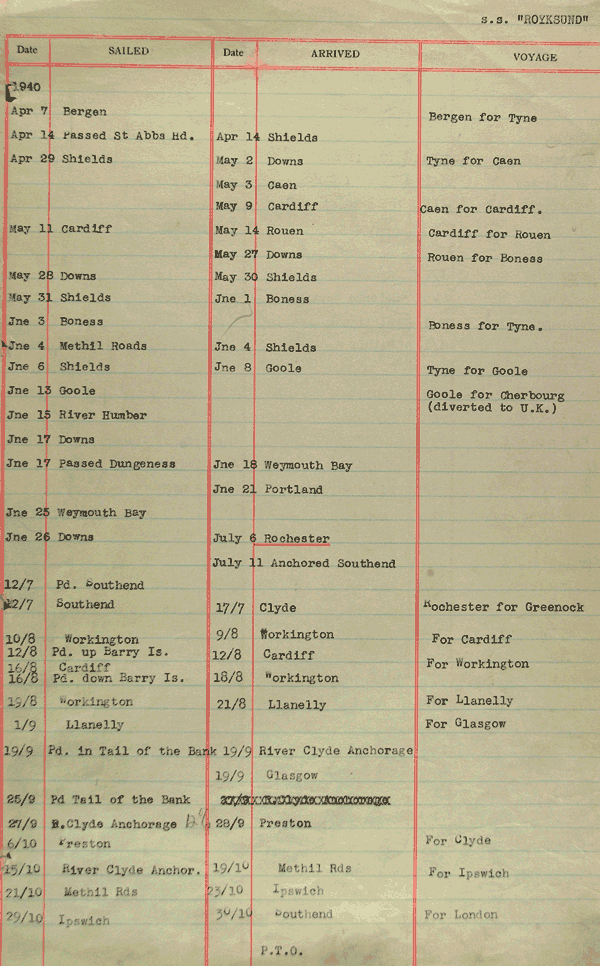 s.s. "ROYKSUND"
Date SAILED Date ARRIVED VOYAGE
1940
Apr 7 Bergen Bergen for Tyne
Apr 14 Passed St Abbs Hd. Apr 14 Shields
Apr 29 Shields May 2 Downs Tyne for Caen
May 3 Caen
May 9 Cardiff Caen for Cardiff.
May 11 Cardiff May 14 Rouen Cardiff for Rouen
May 27 Downs Rouen for Boness
May 28 Downs May 30 Shields
May 31 Shields Jne 1 Boness
Jne 3 Boness Boness for Tyne.
Jne 4 Methil Roads Jne 4 Shields
Jne 6 Shields Jne 8 Goole Tyne for Goole
Jne 13 Goole Goole for Cherbourg
(diverted to U.K.)
Jne 15 River Humber
Jne 17 Downs
Jne 17 Passed Dungeness Jne 18 Weymouth Bay
Jne 21 Portland
Jne 25 Weymouth Bay
Jne 26 Downs July 6 Rochester
July 11 Anchored Southend
12/7 Pd. Southend
12/7 Southend 17/7 Clyde Rochester for Greenock
10/8 Workington 9/8 Workington For Cardiff
12/8 Pd. up Barry Is. 12/8 Cardiff
16/8 Cardiff For Workington
16/8 Pd. down Barry Is. 18/8 Workington
19/8 Workington 21/8 Llanelly For Llanelly
1/9 Llanelly For Glasgow
19/9 Pd. in Tail of the Bank 19/9 River Clyde Anchorage
19/9 Glasgow
25/9 Pd Tail of the Bank
27/9 R.Clyde Anchorage 28/9 Preston
6/10 Preston For Clyde
15/10 River Clyde Anchor. 19/10 Methil Rds For Ipswich
21/10 Methil Rds 23/10 Ipswich
29/10 Ipswich 30/10 Southend For London
P.T.O.